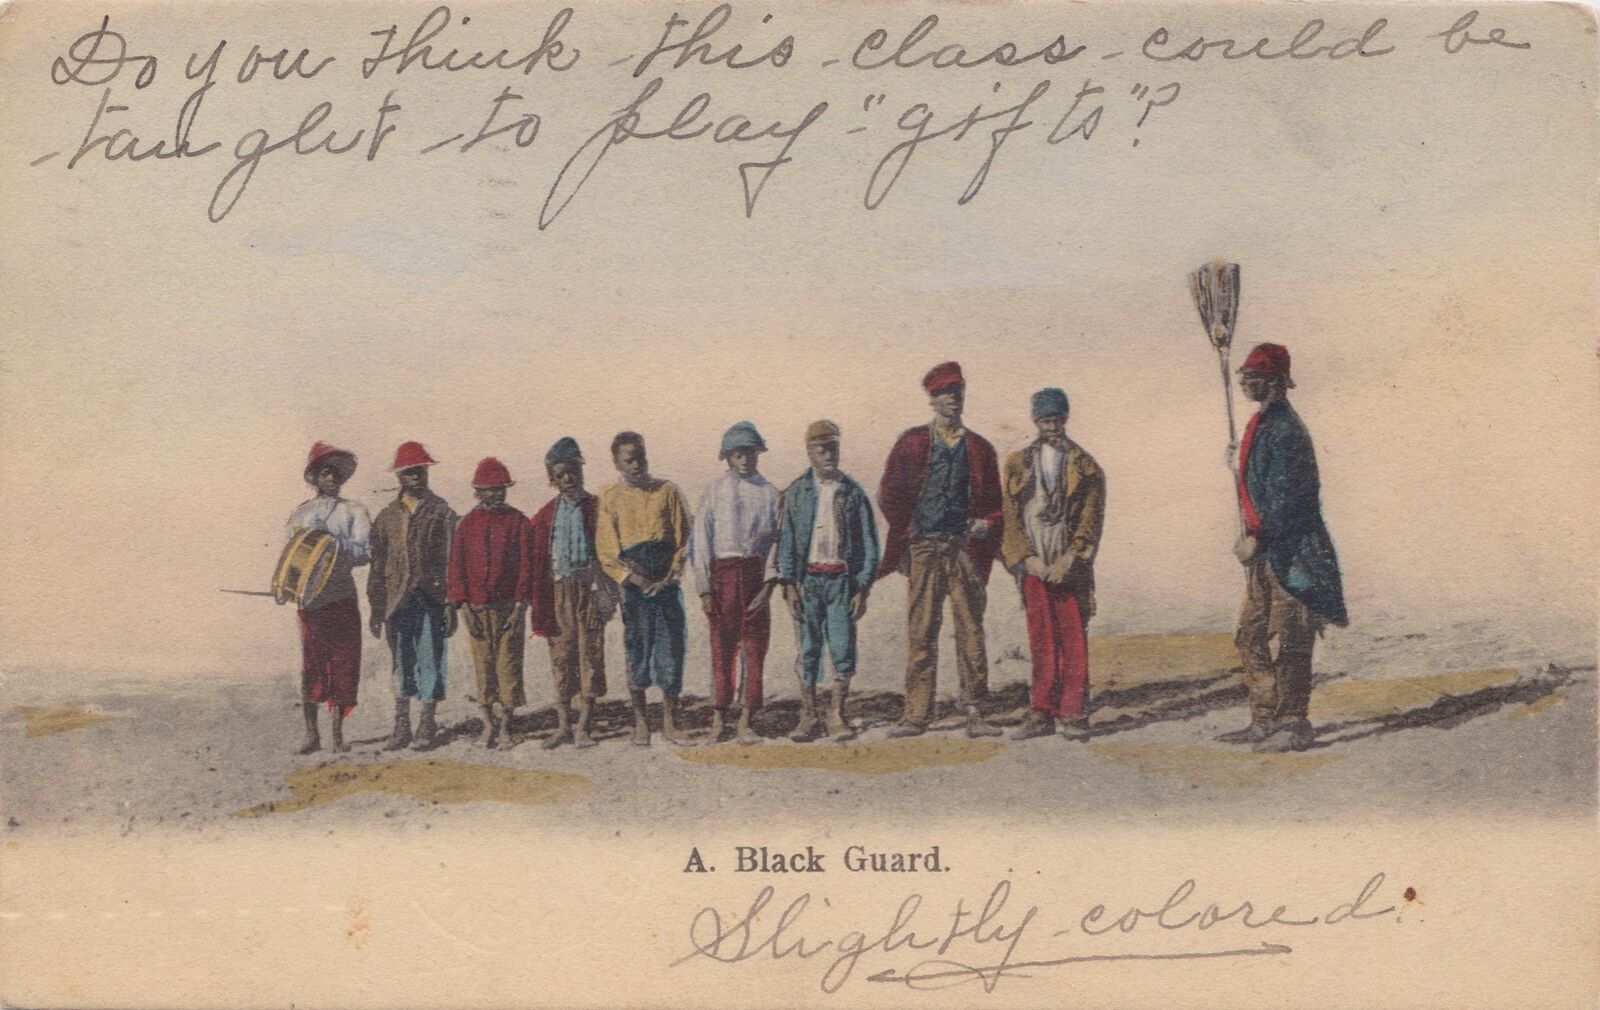 Do you think this class could be
taught to play "gifts"?
A. Black Guard.
Slightly colored.